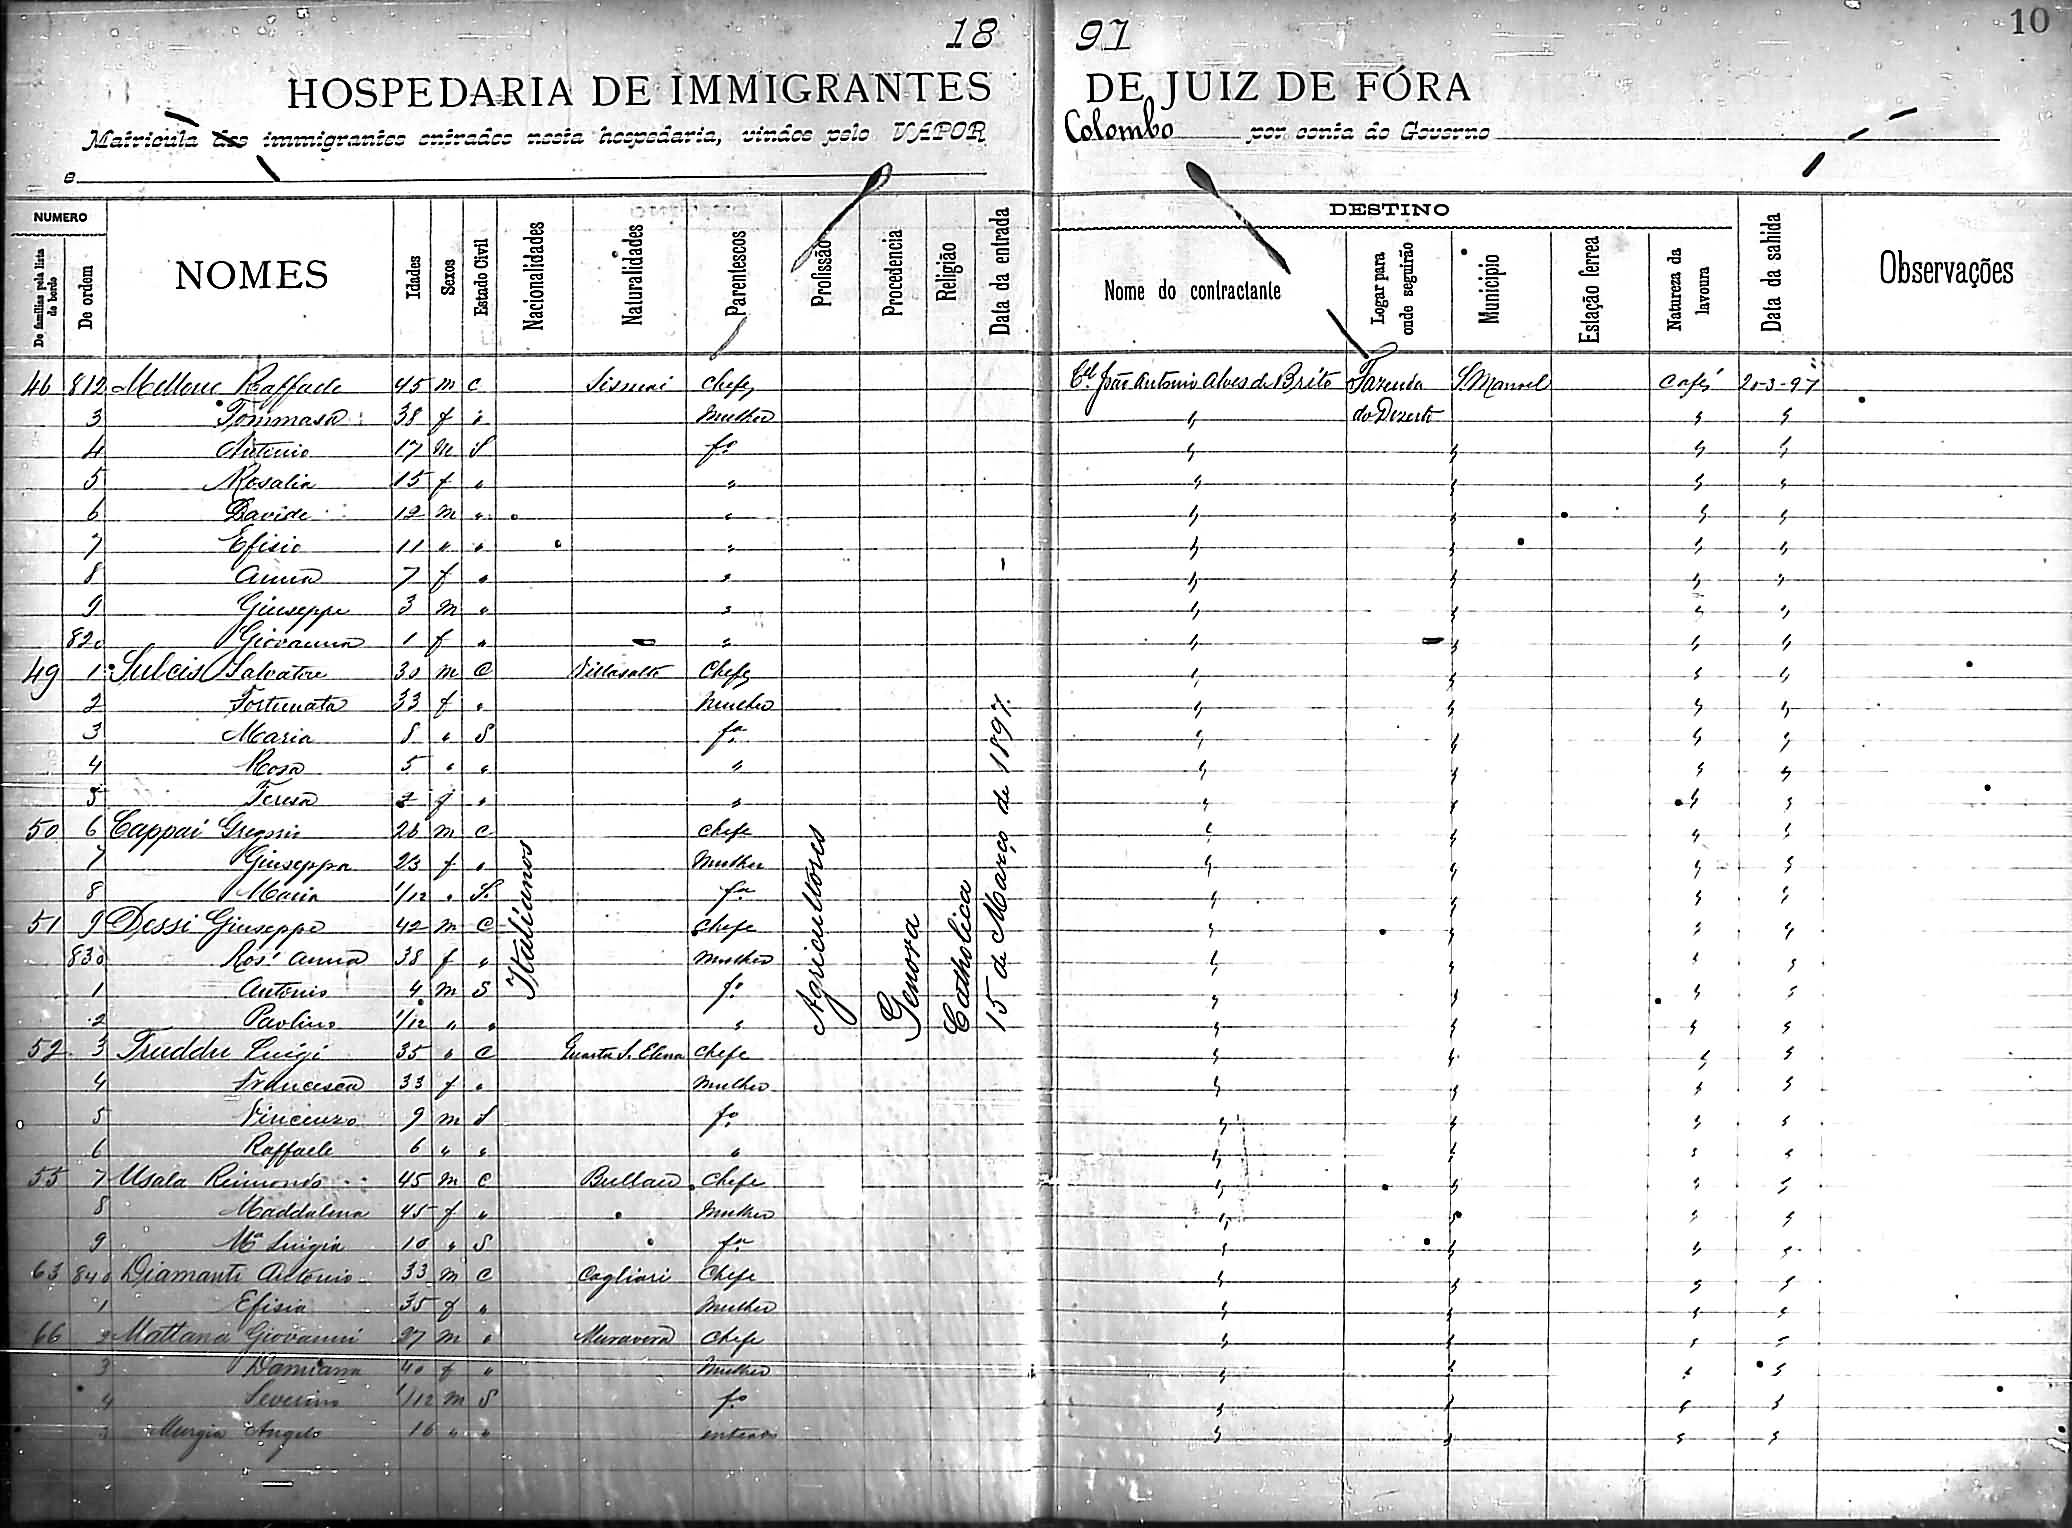 18 97
10
HOSPEDARIA DE IMMIGRANTES DE JUIZ DE FÓRA
Matricula dos immigrantes entrados nesta hospedaria, vindos pelo VAPOR Colombo por conta do Governo
e
NUMERO
De familias pela lista de bordo
De ordem
NOMES
Idades
Sexos
Estado Civil
Nacionalidades
Naturalidades
Parentescos
Profissão
Procedencia
Religião
Data da entrada
DESTINO
Nome do contractante
Logar para onde seguirão
Municipio
Estação ferrea
Natureza da lavoura
Data da sahida
Observações
46 812 Raffaele 45 m C Chefe Cel João Antonio Alves de Brito Fazenda S. Manoel Café 20-3-97
3 Tommasa 38 f " Mulher " do Dezerto " "
4 Antonio 17 m S fo " " " "
5 Rosalia 15 f " " " " " "
6 Davide 12 m " " " " " "
7 Efisio 11 " " " " " " "
8 Anna 7 f " " " " " "
9 Giuseppe 3 m " " " " " "
820 Giovanna 1 f " " " " " "
49 1 Sulcis Salvatore 30 m C Villasalto Chefe " " " "
2 Fortunata 33 f " Mulher " " " "
3 Maria 8 " S fa " " " "
4 Rosa 5 " " " " " " "
5 Teresa 2 f " " " " " "
50 6 Cappai Gregorio 26 m C Chefe " " " "
7 Giuseppa 23 f " Mulher " " " "
8 Maria 1/12 " S. fa " " " "
51 9 Dessi Giuseppe 42 m C Chefe " " " "
830 Ros' Anna 38 f " Mulher " " " "
1 Antonio 4 m S fo " " " "
2 Paolino 1/12 " " " " " " "
52 3 Truddu Luigi 35 " C Quarta S. Elena Chefe " " " "
4 Francesca 33 f " Mulher " " " "
5 Vincenzo 9 m S fo " " " "
6 Raffaele 6 " " " " " " "
55 7 Usala 45 m C Chefe " " " "
8 Maddalena 45 f " Mulher " " " "
9 Ma Luigia 10 " S fa " " " "
63 840 Diamanti Antonio 33 m C Cagliari Chefe " " " "
1 Efisia 35 f " Mulher " " " "
66 2 Mattana Giovanni 27 m " Muravera Chefe " " " "
3 Damiana 40 f " Mulher " " " "
4 Severino 1/12 m S fo " " " "
5 Murgia Angelo 16 " " " " " "
Italianos
Agricultores
Genova
Catholica
15 de Março de 1897.